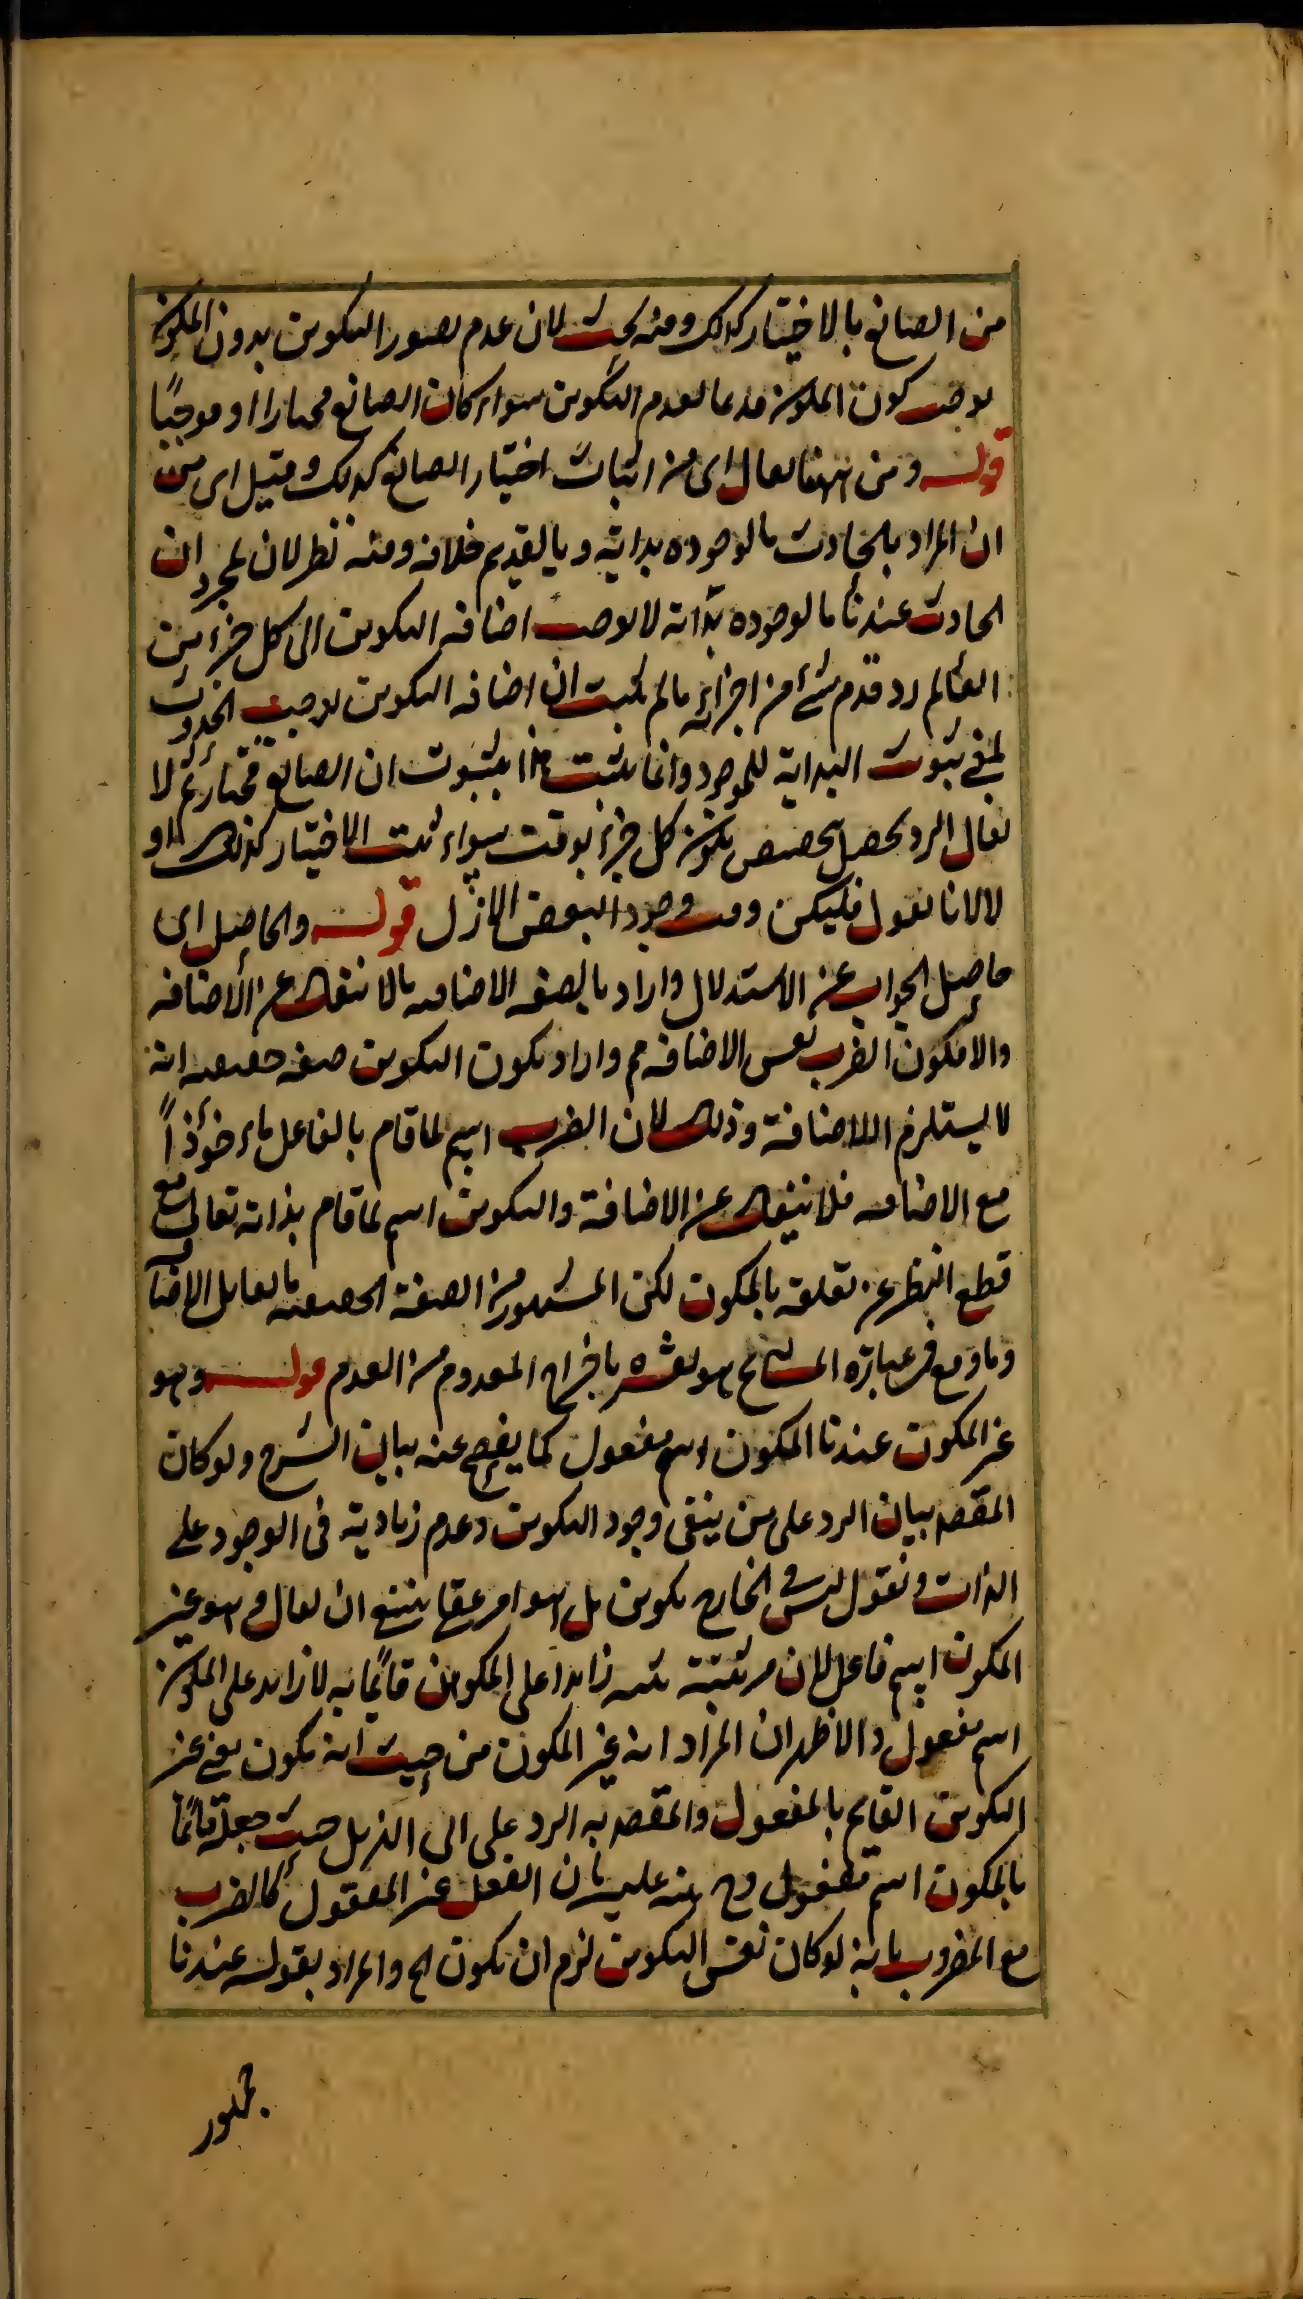 من الصانع بالاختيار كذلك وفيه بحث لان عدم تصور التكوين بدون المكون
يوجب كون المكون قديما لقدم التكوين سواء كان الصانع مختارا او موجبًا
قوله ومن ههنا يقال اى من اثبات اختيار الصانع كذلك وقيل اى من
ان المراد بالحادث ما لوجوده بداية وبالقديم خلافه وفيه نظر لان مجرد ان
الحادث عندنا ما لوجوده بداية لا يوجب اضافة التكوين الى كل جزء من
العالم رد قدم شئ من اجزائه ما لم يثبت ان اضافة التكوين يوجب الحدوث
بمعنى ثبوت البداية للموجود وانما يثبت هذا بثبوت ان الصانع مختار ثم لا
يقال الرد يحصل بتخصيص تكوين كل جزء بوقت سواء ثبت الاختيار كذلك او
لا لانا نقول فليكن وقت وجود البعض الازل قوله والحاصل اى
حاصل الجواب عن الاستدلال واراد بالصفة الاضافية ما لا ينفك عن الاضافة
والا فكون الضرب نفس الاضافة مم واراد بكون التكوين صفة حقيقية انه
لا يستلزم الاضافة وذلك لان الضرب اسم لما قام بالفاعل مأخوذاً
مع الاضافة فلا ينفك عن الاضافة والتكوين اسم لما قام بذاته تعالى مع
قطع النظر عن تعلقه بالمكون لكن المشهور من الصفة الحقيقية ما يقابل الاضافة
وما وقع فى عبارة المشايخ هو تفسيره باخراج المعدوم من العدم قوله وهو
غير المكون عندنا المكون اسم مفعول كما يفصح عنه بيان الشرح ولو كان
المقصد بيان الرد على من ينفى وجود التكوين وعدم زيادته فى الوجود على
الذات ونقول ليس فى الخارج تكوين بل هو امر عقلى ينبغى ان يقال وهو غير
المكون اسم فاعل لان من يثبته يثبته زائدا على المكون قائما به لا زائد على المكون
اسم مفعول والاظهر ان المراد انه غير المكون من حيث انه مكون يعنى غير
التكوين القايم بالمفعول والمقصد به الرد على ابى الهذيل حيث جعله قائما
بالمكون اسم مفعول وح عليه بان الفعل غير المفعول كالضرب
مع المضروب بانه لو كان نفس التكوين لزم ان يكون الخ والمراد بقوله عندنا
جمهور